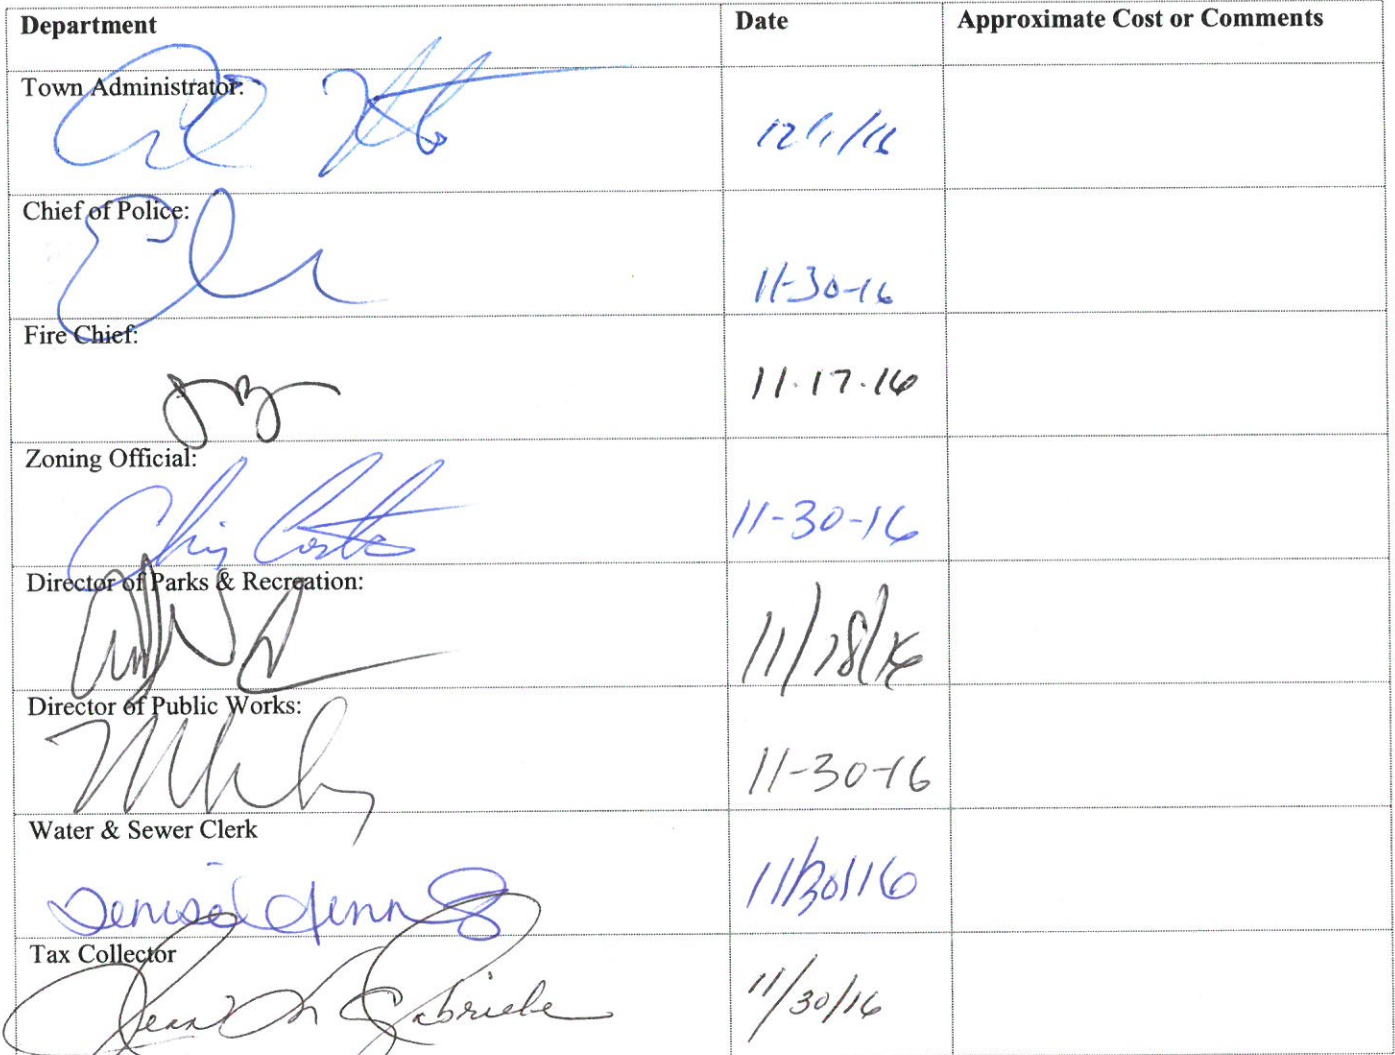 Department Date Approximate Cost or Comments
Town Administrator:
12/1/16
Chief of Police:
11-30-16
Fire Chief:
11.17.16
Zoning Official:
11-30-16
Director of Parks & Recreation:
11/18/16
Director of Public Works:
11-30-16
Water & Sewer Clerk
Denise 11/30/16
Tax Collector
11/30/16